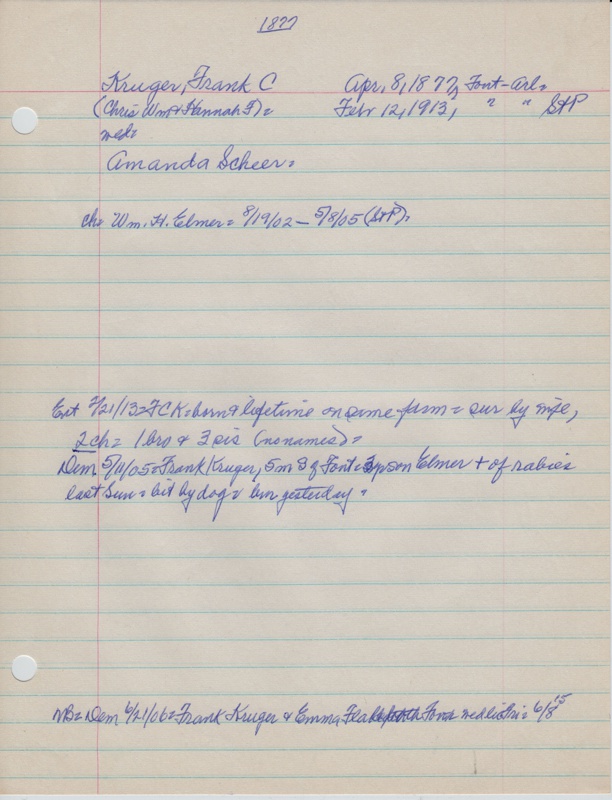 1877
Kruger, Frank C Apr, 8, 1877, Font-Arl=
(Chris Wm & Hannah F)= Febr 12, 1913, " " StP
wed=
Amanda Scheer=
ch= Wm. H. Elmer= 8/19/02 - 5/8/05 (StP)=
Ent 2/21/13= FCK= born & lifetime on same farm= sur by wife,
2 ch= 1 bro & 3 sis (no names)=
Dem. 5/11/05= Frank Kruger, 5 m S of Font= son Elmer + of rabies
last Sun= bit by dog= brn yesterday=
NB= Dem 6/21/06= Frank Kruger & Emma wed 6/8